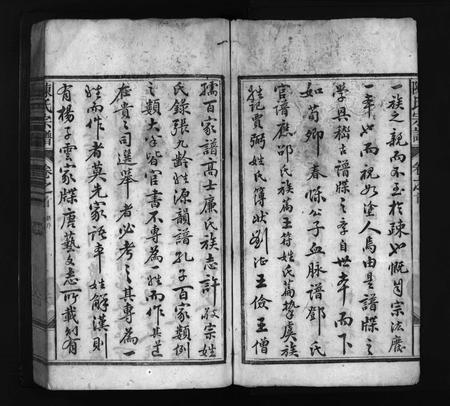 一族之親而不至於疎也慨自宗法廢
一率也而視如塗人焉由是譜牒之
學興稽古譜牒之章自世率而下
如荀卿春秋公子血脉譜鄧氏
官譜應邵氏族篇王符姓氏篇摯虞族
姓記賈弼姓氏簿狀劉湛王儉王僧
孺百家譜高士廉氏族志許敬宗姓
氏錄張九齡姓源韻譜孔子百家類例
之類大率皆官書不專為一姓而作其
在貴之司選舉者必考之其專為一
姓而作者莫先家語率姓解漢則
有楊子雲家牒唐藝文志所載則有
陳氏宗譜
卷之首
陳氏宗譜